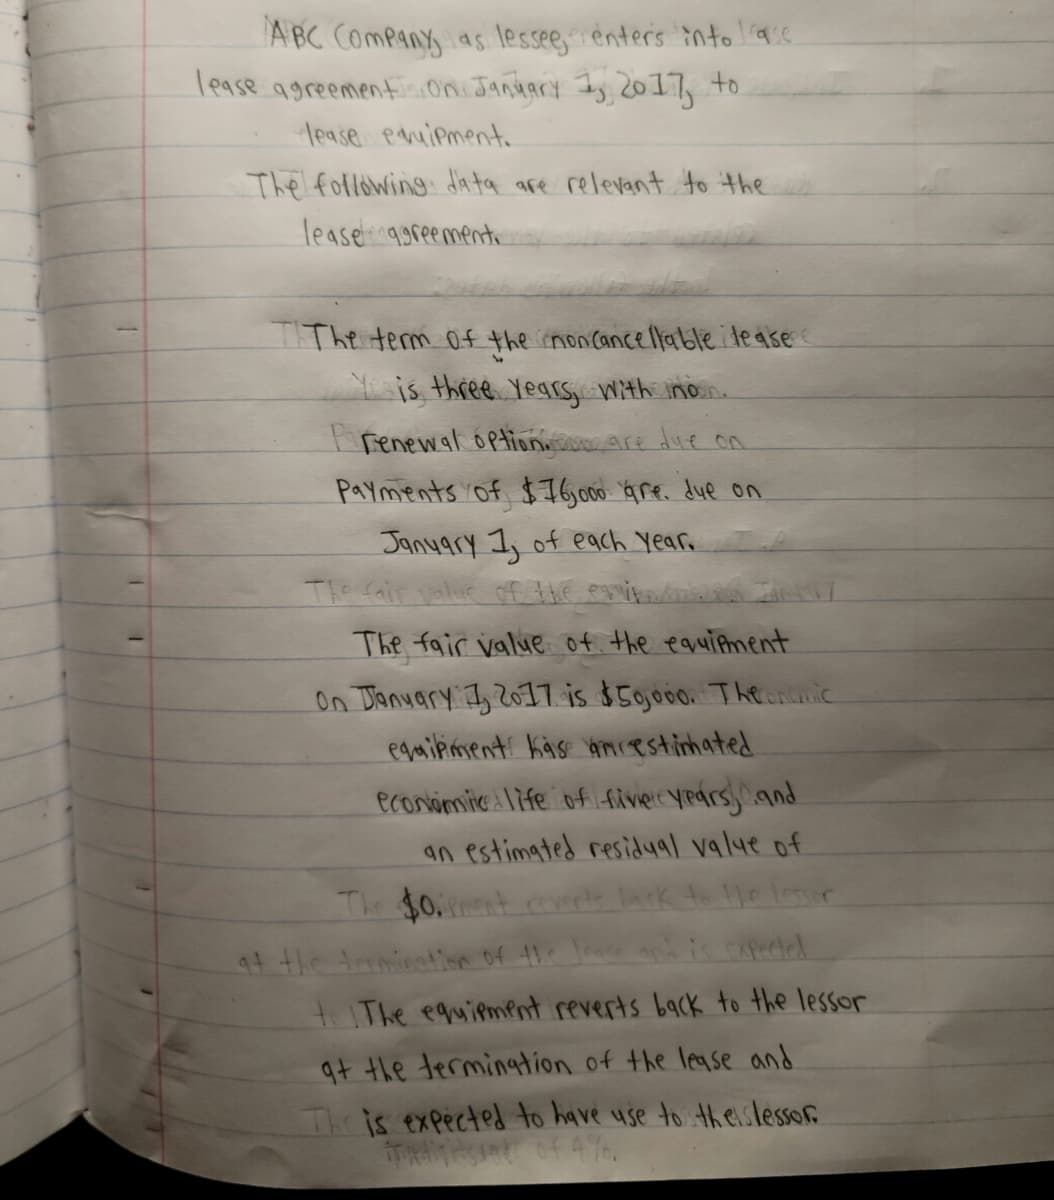 ABC Company, as lessee, enters into a
lease agreement on January 1, 2017, to
lease equipment.
The following data are relevant to the
lease agreement.
The term of the noncancellable lease
is three years, with no
renewal option.
Payments of $76,000 are due on
January 1, of each year.
The fair value of the
The fair value of the equipment
on January 1, 2017 is $50,000. The
equipment has an estimated
economic life of five years, and
an estimated residual value of
$0.
at the termination of the lease and is expected
The equipment reverts back to the lessor
at the termination of the lease and
is expected to have use to the lessor.
of 4%.